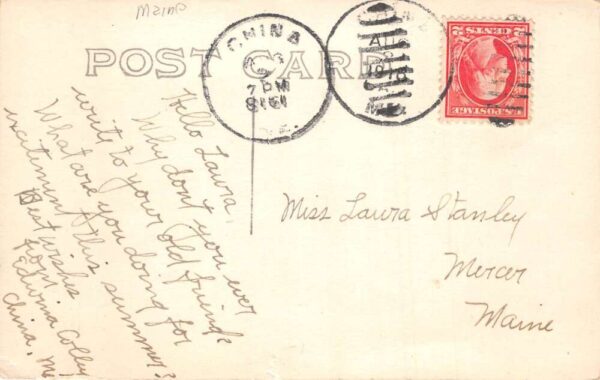 Maine
POST CARD
CHINA
7 PM
1918
ME.
CHINA
AUG
1918
ME.
U.S. POSTAGE
2 CENTS 2
Hello Laura,
Why don't you ever
write to your old friends
What are you doing for
excitement this summer?
Best wishes
from
Edwina Colley
China, Me
Miss Laura Stanley
Mercer
Maine